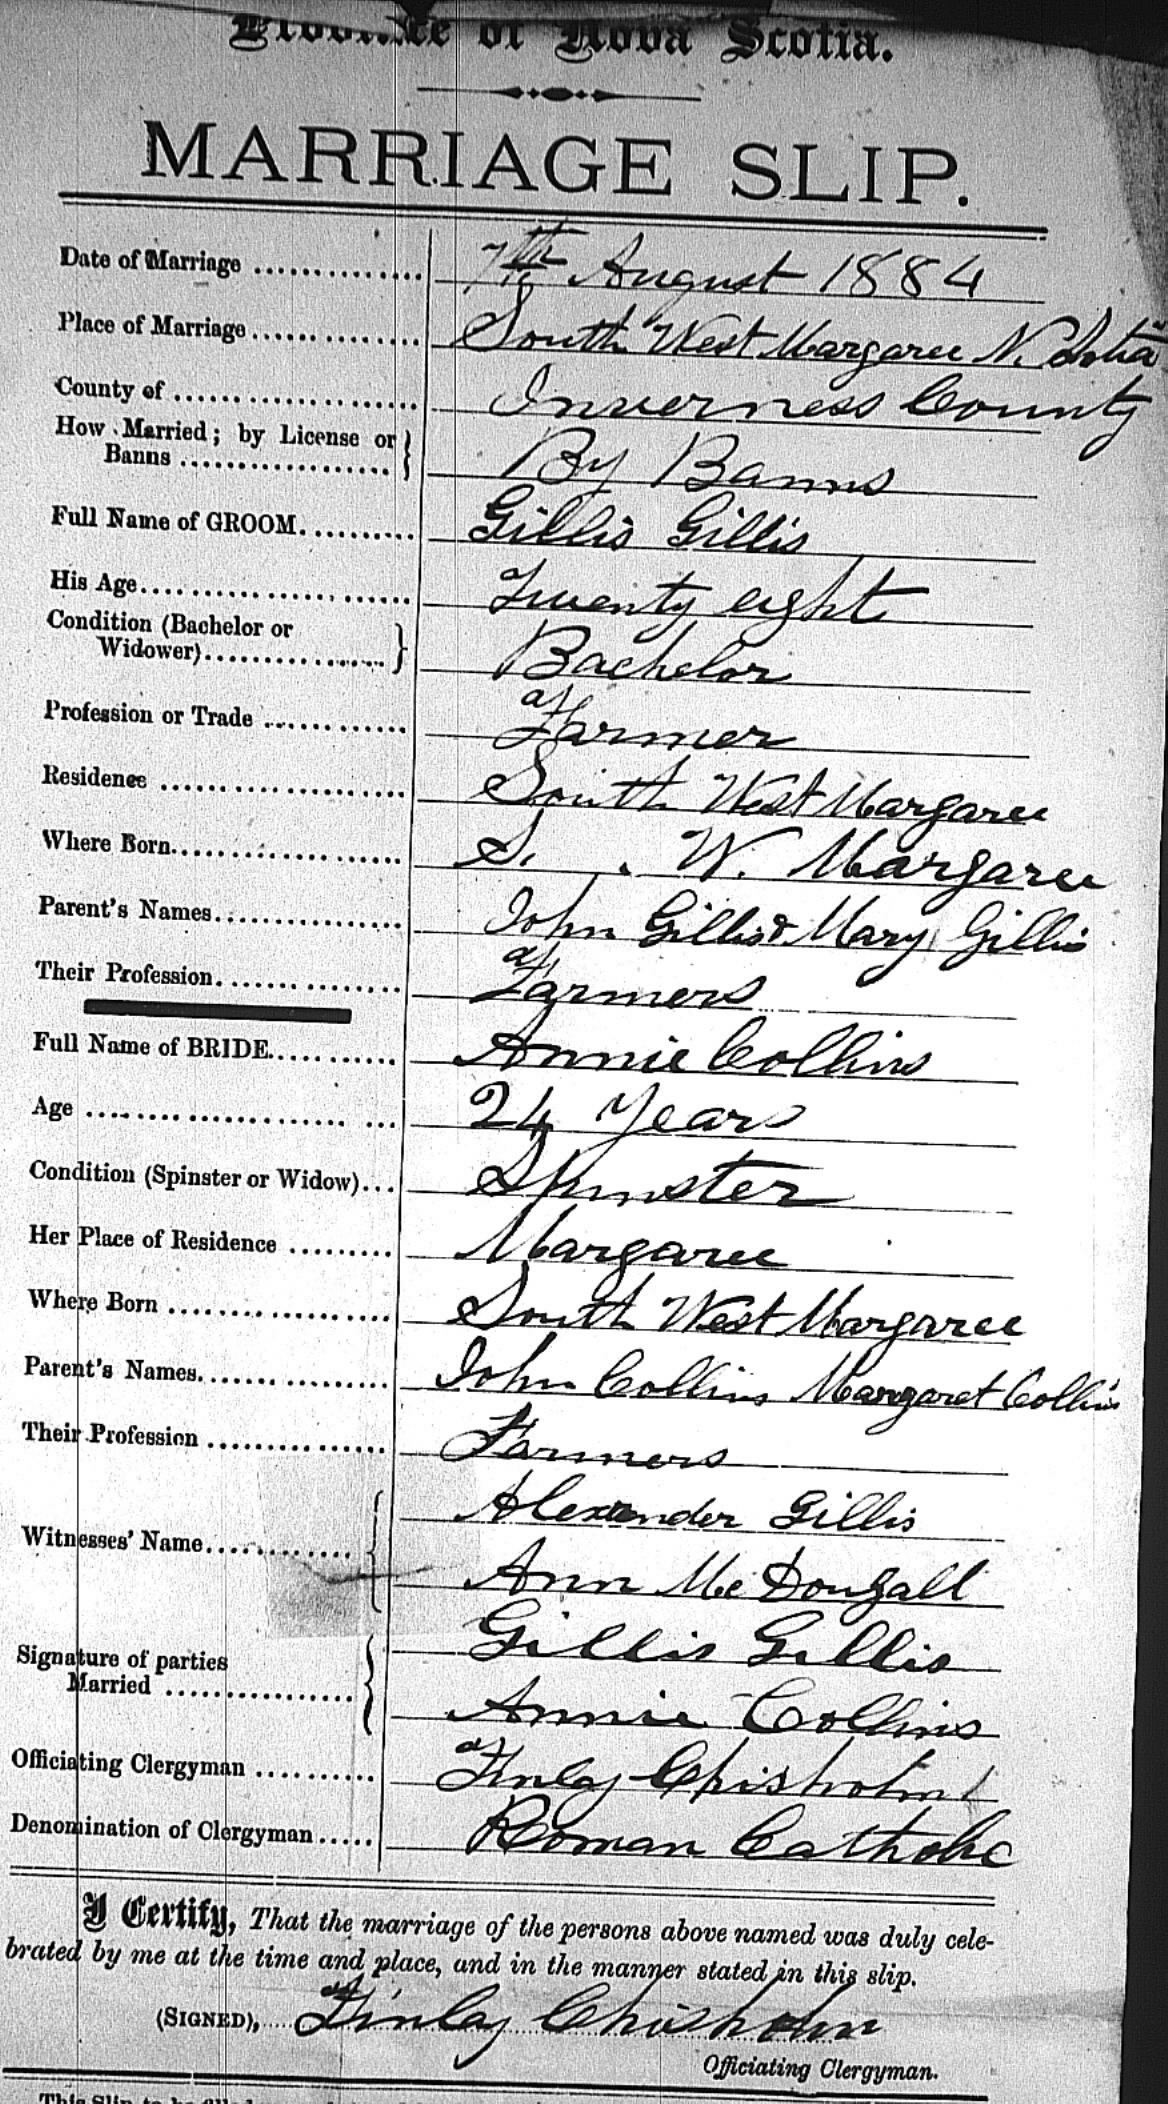 Province of Nova Scotia.
MARRIAGE SLIP.
Date of Marriage .............. 7th August 1884
Place of Marriage .............. South West Margaree N. Scotia
County of .............. Inverness County
How Married; by License or
Banns .............. By Banns
Full Name of GROOM .......... Gillis Gillis
His Age .............. Twenty eight
Condition (Bachelor or
Widower) .............. Bachelor
Profession or Trade .............. Farmer
Residence .............. South West Margaree
Where Born .............. S. W. Margaree
Parent's Names .............. John Gillis & Mary Gillis
Their Profession .............. Farmers
Full Name of BRIDE .......... Annie Collins
Age .............. 24 Years
Condition (Spinster or Widow)... Spinster
Her Place of Residence ......... Margaree
Where Born .............. South West Margaree
Parent's Names .............. John Collins Margaret Collins
Their Profession .............. Farmers
Alexander Gillis
Witnesses' Name ..............
Ann McDougall
Gillis Gillis
Signature of parties
Married ..............
Annie Collins
Officiating Clergyman .......... Finlay Chisholm
Denomination of Clergyman ..... Roman Catholic
I Certify, That the marriage of the persons above named was duly cele-
brated by me at the time and place, and in the manner stated in this slip.
(SIGNED), Finlay Chisholm
Officiating Clergyman.
This Slip to be filled